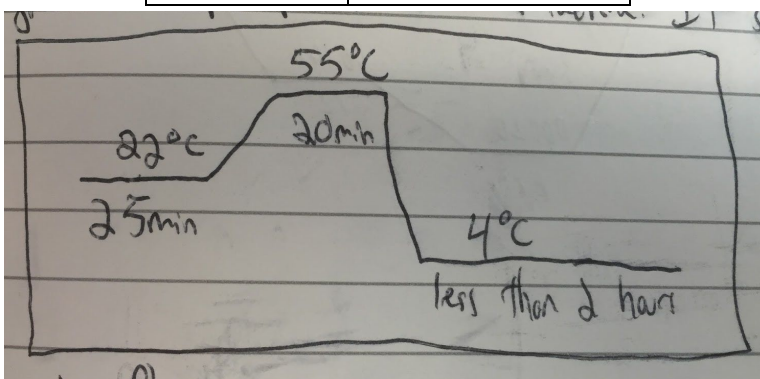 55°C
22°C
20min
25min
4°C
less than 2 hours